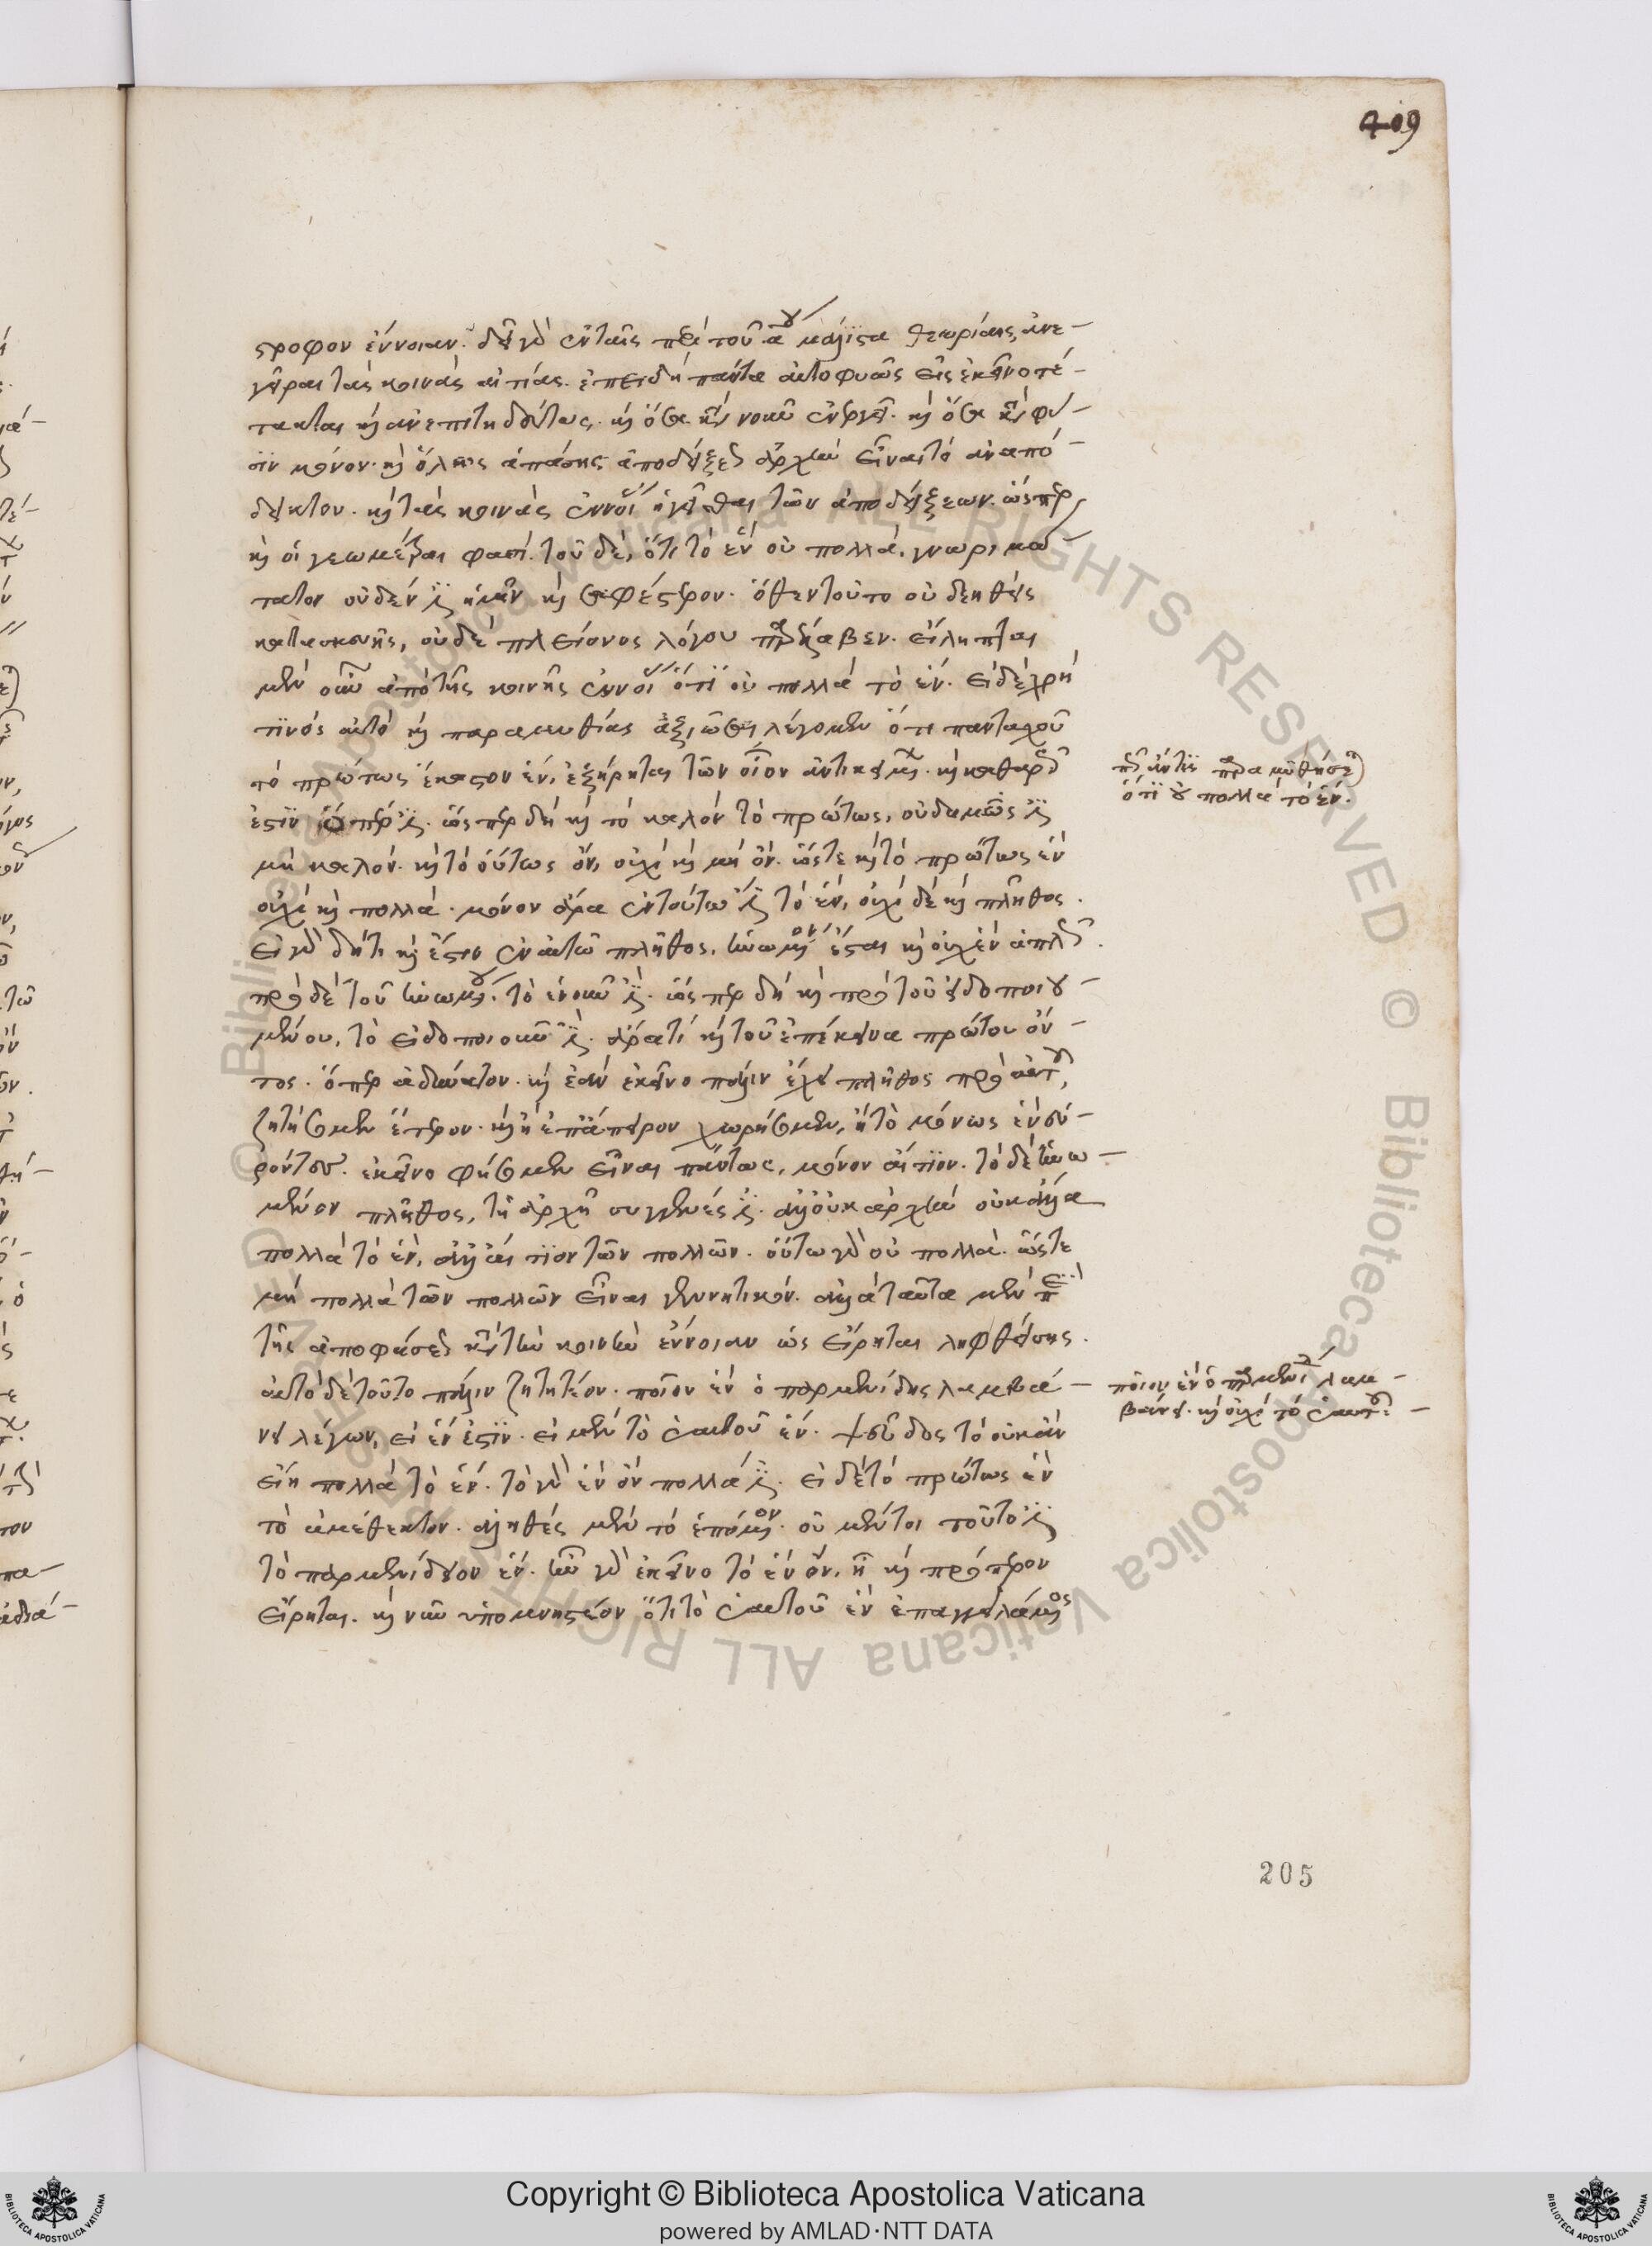 409
στροφον ἔννοιαν. δεῖ γὰρ ἐν ταῖς περὶ τοῦ α ου μάλιστα θεωρίαις, ἀνε-
γεῖραι τὰς κοινὰς αἰτίας. ἐπειδὴ πάντα αὐτοφυῶς εἰς ἐκεῖνο τέ-
τακται καὶ ἀνεπιτηδεύτως. καὶ ὅσα κατὰ νοῦν ἐνεργεῖ. καὶ ὅσα κατὰ φύ-
σιν μόνον. καὶ ὅλως ἁπάσης ἀποδείξεως ἀρχὴν εἶναι τὸ ἀναπό-
δεικτον. καὶ τὰς κοινὰς ἐννοίας ἡγεῖσθαι τῶν ἀποδείξεων. ὥσπερ
καὶ οἱ γεωμέτραι φασί. τοῦ δὲ, ὅτι τὸ ἓν οὐ πολλά, γνωριμώ-
τατον οὐδέν ἐστιν ἡμῖν καὶ σαφέστερον. ὅθεν τοῦτο οὐ δεηθεὶς
κατασκευῆς, οὐδὲ πλείονος λόγου παρέλαβεν. εἴληπται
μὲν οὖν ἀπὸ τῆς κοινῆς ἐννοίας ὅτι οὐ πολλὰ τὸ ἕν. εἰ δὲ χρὴ
τινὸς αὐτὸ καὶ παραμυθίας ἀξιῶσαι, λέγομεν ὅτι πανταχοῦ
τὸ πρώτως ἕκαστον ἕν, ἐξῄρηται τῶν οἷον ἀντικειμένων. καὶ καθαρῶς
ἐστιν ὅπερ ἐστίν. ὥσπερ δὴ καὶ τὸ καλὸν τὸ πρώτως, οὐδαμῶς ἐστι
μὴ καλόν. καὶ τὸ ὄντως ὄν, οὐχὶ καὶ μὴ ὄν. ὥστε καὶ τὸ πρώτως ἓν
οὐχὶ καὶ πολλά. μόνον ἄρα ἐν τούτῳ ἐστὶ τὸ ἕν, οὐχὶ δὲ καὶ πλῆθος.
εἰ γὰρ δή τι καὶ ἔστιν ἐν αὐτῷ πλῆθος, ἡνωμένον ἔσται καὶ οὐχ ἓν ἁπλῶς.
πρὸ δὲ τοῦ ἡνωμένου, τὸ ἑνοῦν ἐστίν. ὥσπερ δὴ καὶ πρὸ τοῦ εἰδοποιου-
μένου, τὸ εἰδοποιοῦν ἐστίν. ἄρα τι καὶ τοῦ ἐπέκεινα πρώτου ὄν-
τος. ὅπερ ἀδύνατον. καὶ ἐὰν ἐκεῖνο πάλιν ἔχει πλῆθος πρὸ αὐτοῦ,
ζητήσομεν ἕτερον. καὶ ἢ ἐπ' ἄπειρον χωρήσομεν, ἢ τὸ μόνως ἓν εὑ-
ρόντες. ἐκεῖνο φήσομεν εἶναι πάντως, μόνον αἴτιον. τὸ δὲ ἡνω-
μένον πλῆθος, τῇ ἀρχῇ συγγενές ἐστιν. ἀλλ' οὐκ ἀρχὴν οὐκ ἄρα
πολλὰ τὸ ἕν, ἀλλ' αἴτιον τῶν πολλῶν. οὕτω γὰρ οὐ πολλά. ὥστε
μὴ πολλὰ τῶν πολλῶν εἶναι γεννητικόν. ἀλλὰ ταῦτα μὲν περὶ
τῆς ἀποφάσεως κατὰ τὴν κοινὴν ἔννοιαν ὡς εἴρηται ληφθείσης.
αὐτὸ δὲ τοῦτο πάλιν ζητητέον. ποῖον ἓν ὁ παρμενίδης λαμβά-
νει λέγων, εἰ ἕν ἐστιν. εἰ μὲν τὸ ἑαυτοῦ ἕν. ψεῦδος τὸ οὐκ ἂν
εἴη πολλὰ τὸ ἕν. τὸ γὰρ ἓν ὂν πολλά ἐστιν. εἰ δὲ τὸ πρώτως ἓν
τὸ ἀμέθεκτον. ἀληθὲς μὲν τὸ ἑπόμενον. οὐ μέντοι τοῦτό ἐστι
τὸ παρμενίδειον ἕν. ἦν γὰρ ἐκεῖνο τὸ ἓν ὄν, ᾗ καὶ πρότερον
εἴρηται. καὶ νῦν ὑπομνηστέον ὅτι τὸ ἑαυτοῦ ἓν ἐπαγγειλάμενος
παραμυθήσεται
ὅτι οὐ πολλὰ τὸ ἕν.
ποῖον ἓν ὁ παρμενίδης λαμ-
βάνει. καὶ οὐχὶ τὸ ἑαυτοῦ. -
205